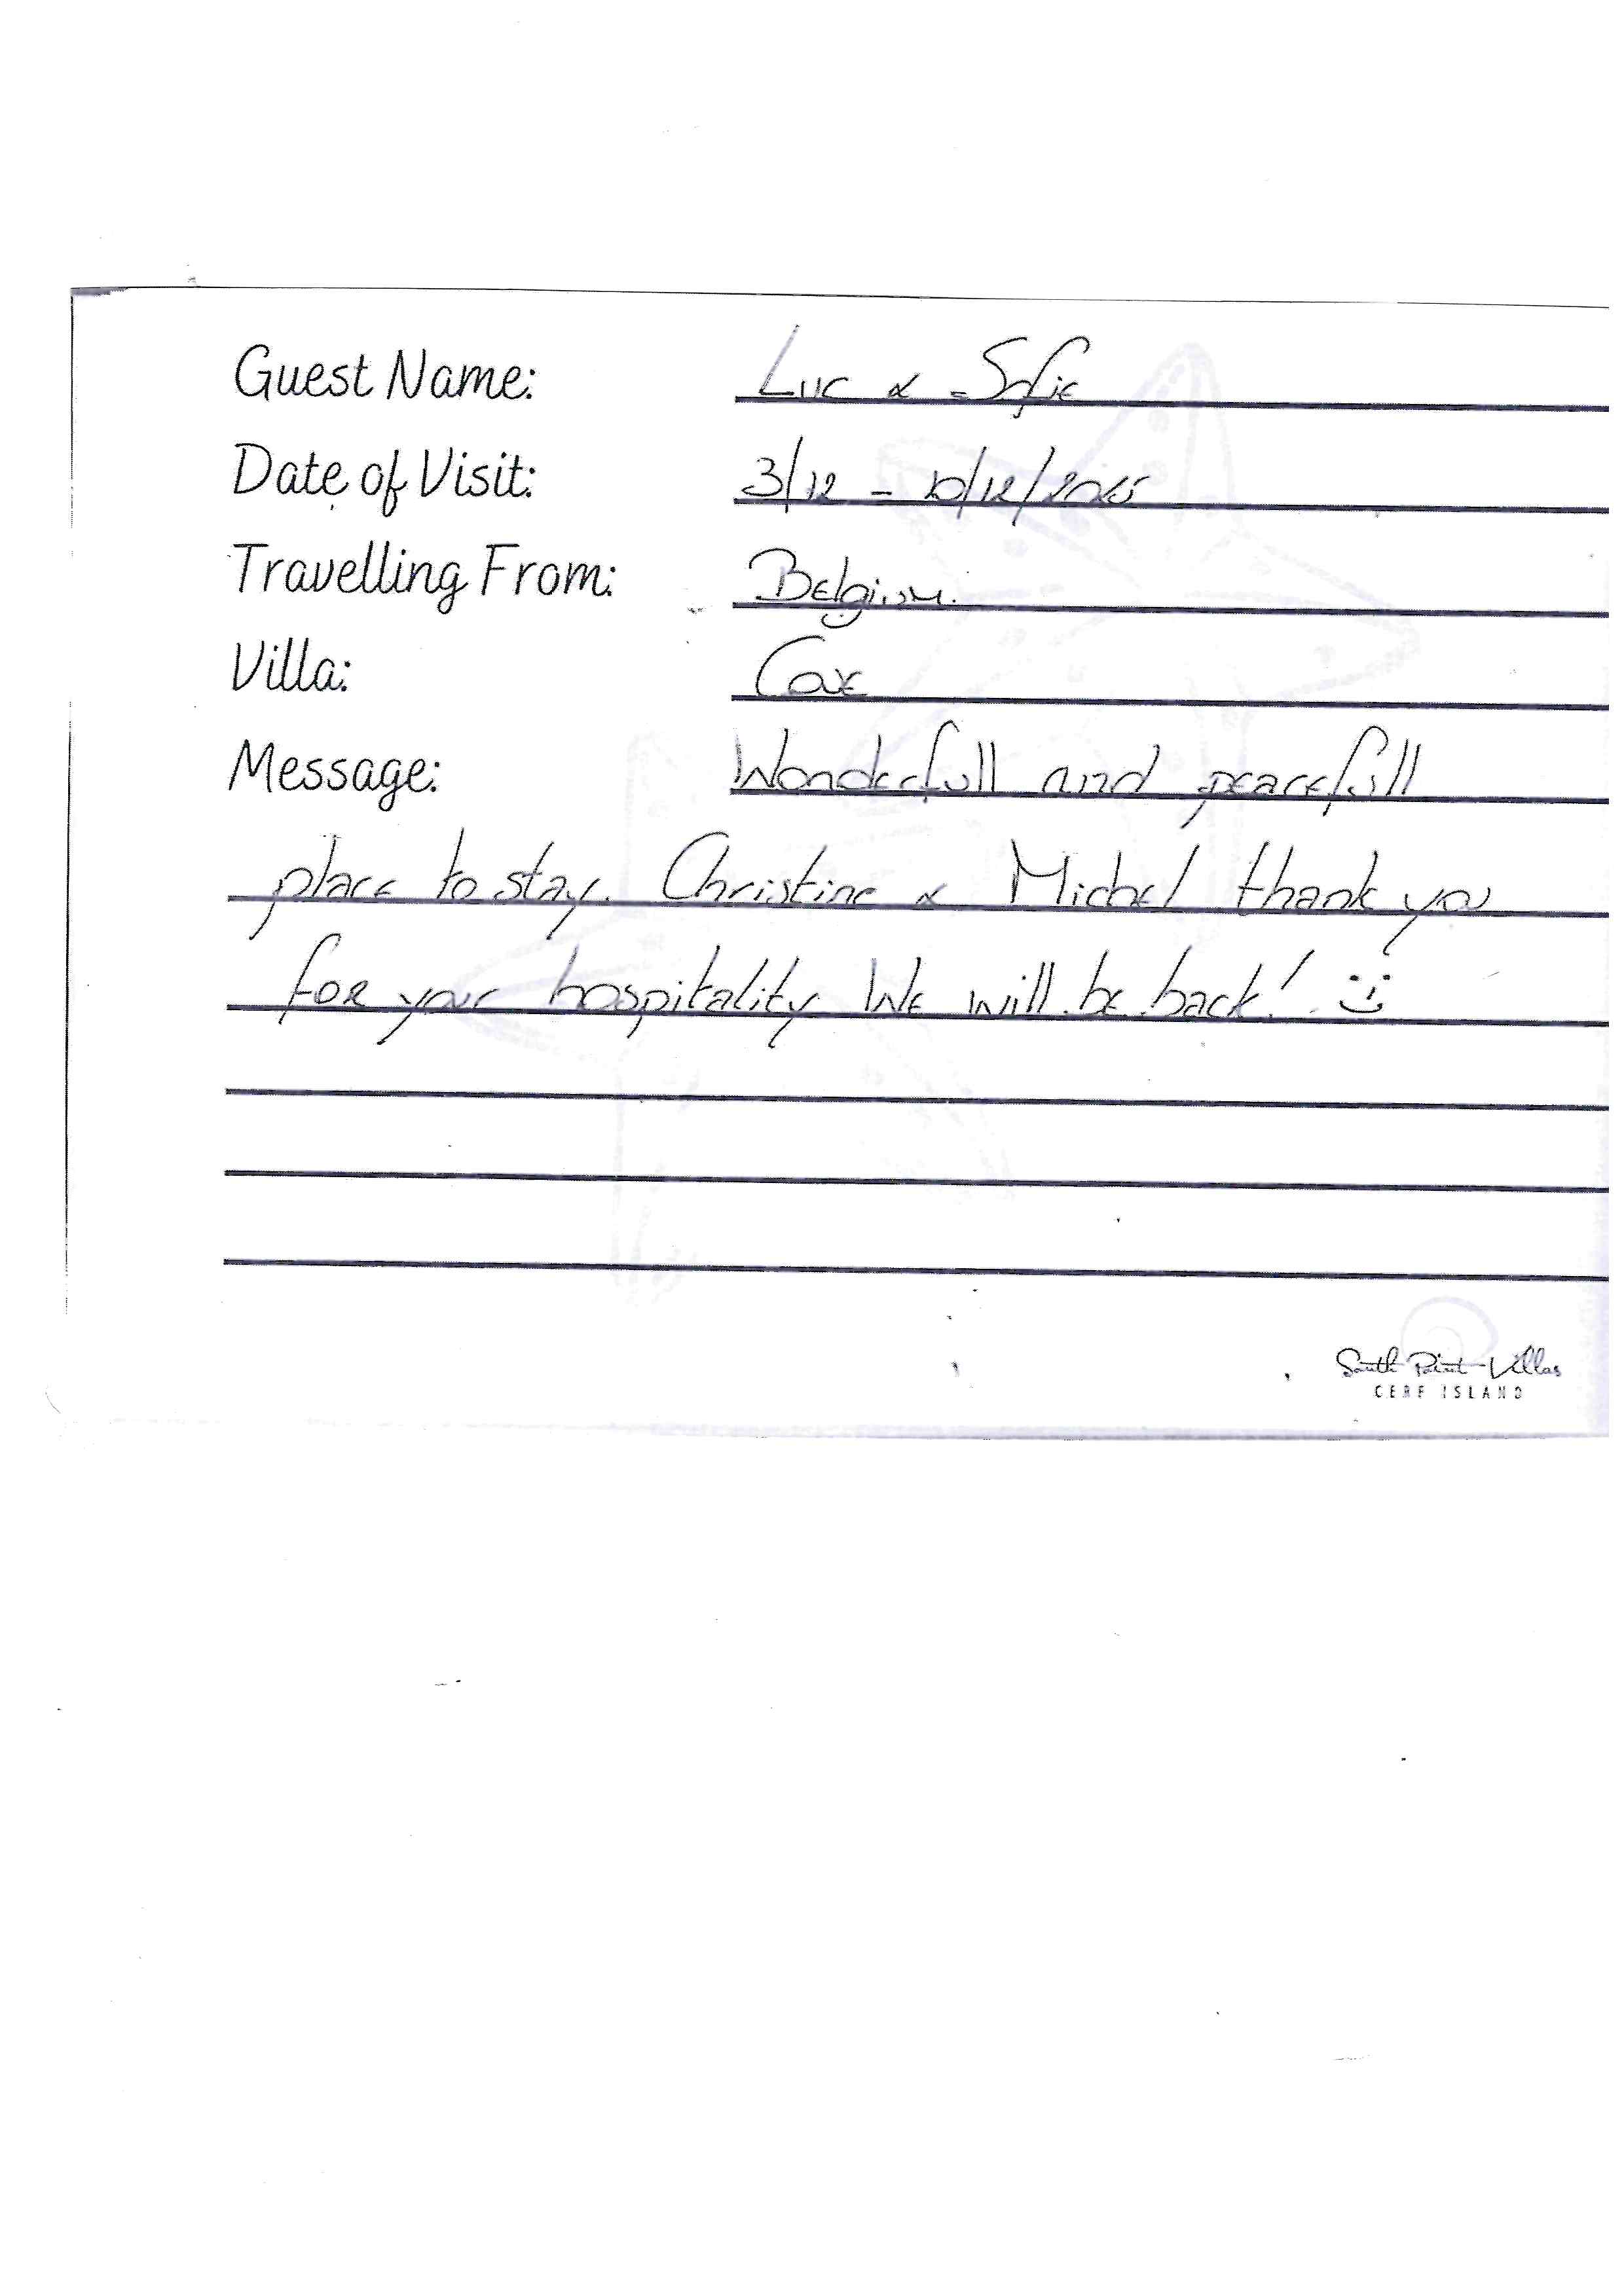 Guest Name: Luc & Sofie
Date of Visit: 3/12 - 10/12/2025
Travelling From: Belgium.
Villa: Cove
Message: Wonderfull and peacefull
place to stay. Christine & Michel thank you
for your hospitality. We will be back! :)
South Point Villas
CERF ISLAND